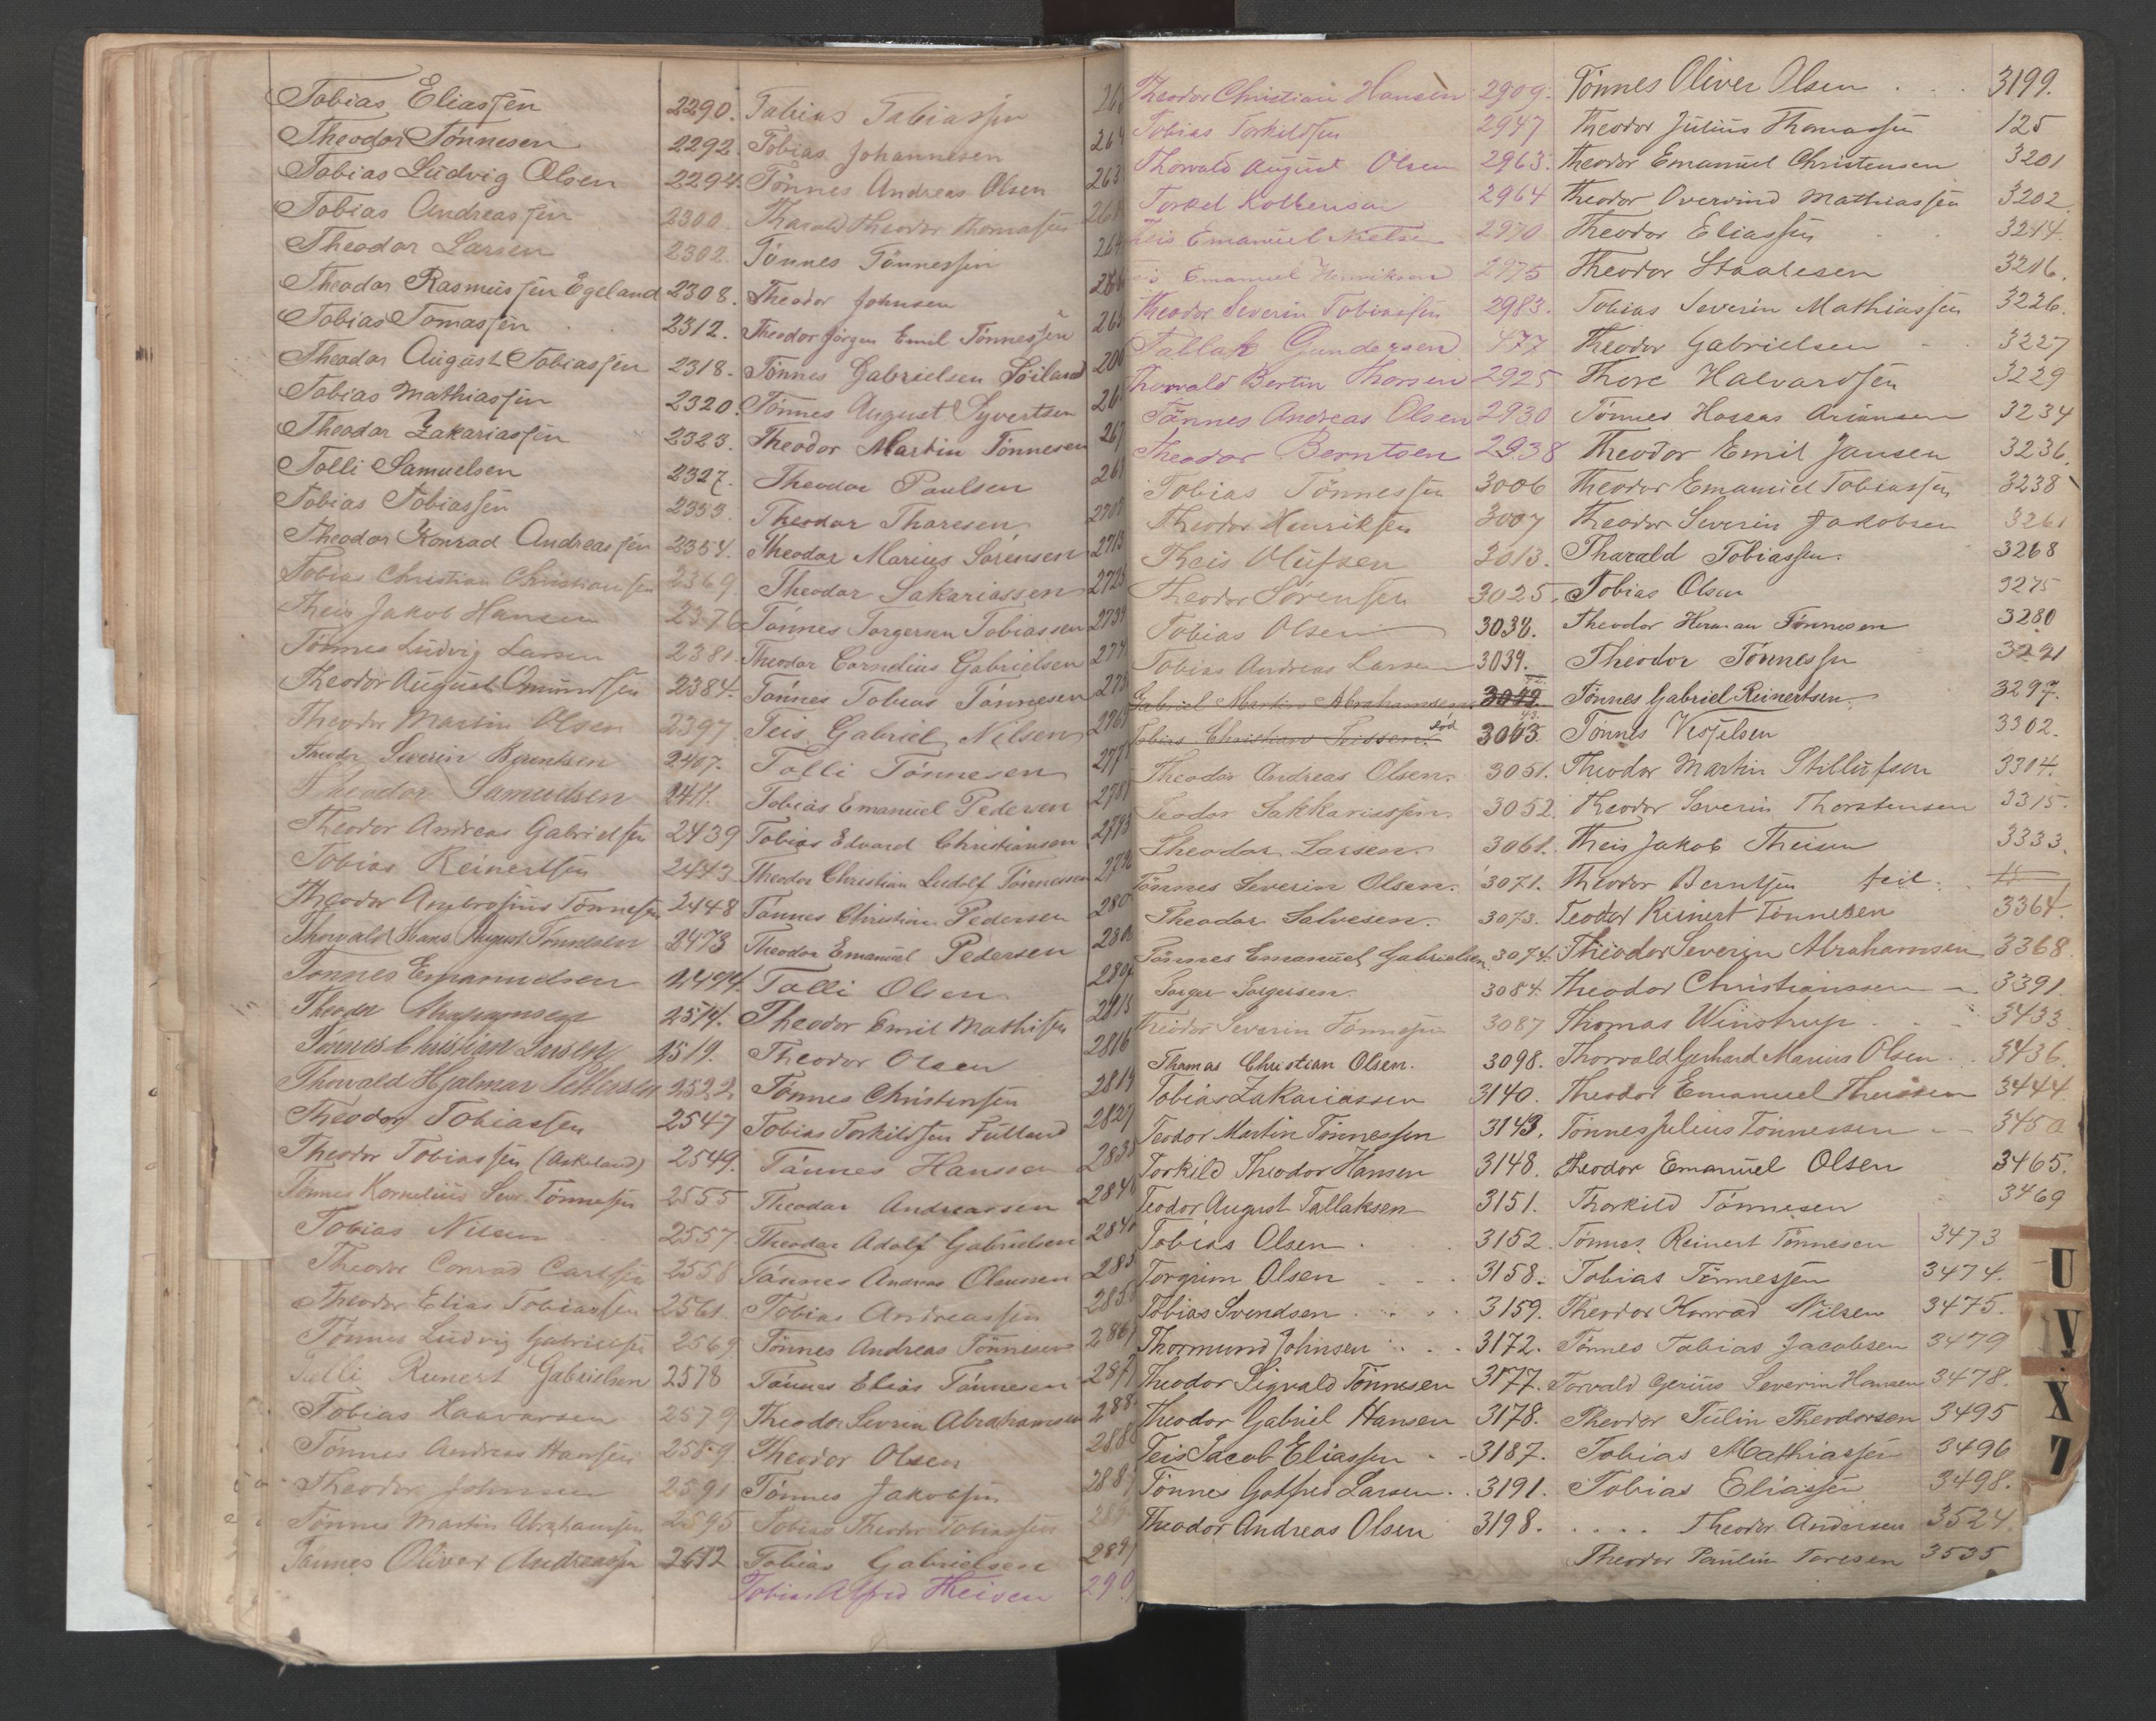 Tobias Eliassen 2290.
Theodor Tönnesen 2292.
Tobias Ludvig Olsen 2294.
Tobias Andreassen 2300.
Theodor Larsen 2302.
Theodor Rasmussen Egeland 2308.
Tobias Tomassen 2312.
Theodor August Tobiassen 2318.
Tobias Mathiassen 2320.
Theodor Zakariassen 2323.
Tolli Samuelsen 2327.
Tobias Tobiassen 2353.
Theodor Konrad Andreassen 2354.
Tobias Christian Christiansen 2369
Theis Jakob Hansen 2376
Tönnes Ludvig Larsen 2381.
Theodor August Omundsen 2384.
Theodor Martin Olsen 2397
Theodr Severin Berentsen 2407.
Theodor Samuelsen 2411.
Theodor Andreas Gabrielsen 2439
Tobias Reinertsen 2443
Theodor Ambrosius Tönnesen 2448
Thorvald Hans August Tönnesen 2473
Tönnes Emanuelsen 2494.
Theodr 2514.
Tönnes Christian Larsen 2519.
Thorvald Hjalmar Pettersen 2522
Theodor Tobiassen 2547
Theodor Tobiassen (Askeland) 2549.
Tönnes Kornelius Sev. Tönnesen 2555
Tobias Nilsen 2557
Theodor Conrad Carlsen 2558
Theodor Elias Tobiassen 2561.
Tönnes Ludvig Gabrielsen 2569
Tolli Reinert Gabrielsen 2578
Tobias Haavarsen 2579
Tönnes Andreas Hansen 2589.
Theodor Johnsen 2591
Tönnes Martin Abrahamsen 2595
Tönnes Oliver Andreassen 2612
Tobias Tobiassen 26
Tobias Johannesen 264
Tönnes Andreas Olsen 263
Tharald Theodor Thomassen 26
Tönnes Tönnessen 264
Theodor Johnsen 26
Theodor Jörgen Emil Tönnessen 265
Tönnes Gabrielsen Söiland 266
Tönnes August Syvertsen 26
Theodor Martin Tönnesen 267
Theodor Paulsen 26
Theodor Tharesen 270
Theodor Marius Sörensen 2713
Theodor Sakariassen 272
Tönnes Torgersen Tobiassen 273
Theodor Cornelius Gabrielsen 274
Tönnes Tobias Tönnesen 275
Teis Gabriel Nilsen 276
Tolli Tönnesen 277
Tobias Emanuel Pedersen 278
Tobias Edvard Christiansen 279
Theodor Christian Ludolf Tönnessen 279
Tönnes Christian Pedersen 280
Theodor Emanuel Pedersen 280
Tolli Olsen 280
Theodor Emil Mathisen 2815
Theodor Olsen 2816
Tönnes Christensen 2819
Tobias Torkildsen Fulland 2827
Tönnes Hanssen 283
Theodor Andreassen 284
Theodor Adolf Gabrielsen 284
Tönnes Andreas Olaussen 285
Tobias Andreassen 285
Tönnes Andreas Tönnesen 286
Tönnes Elias Tönnesen 287
Theodor Sevrin Abrahamsen 288
Theodor Olsen 2888
Tönnes Jakobsen 288
Tobias Theodor Tobiassen 289
Tobias Gabrielsen 289
Tobias Alfred Theisen 290
Theodor Christian Hansen 2909.
Tobias Torkildsen 2947
Thorvald August Olsen 2963.
Torkel Kolbensen 2964
Teis Emanuel Nielsen 2970
Teis Emanuel Henriksen 2975
Theodor Severin Tobiassen 2983.
Tallak Gundersen 477
Thorvald Bertin Thorsen 2925
Tönnes Andreas Olsen 2930
Theodor Berntsen 2938
Tobias Tönnessen 3006
Theodor Henriksen 3007
Theis Olufsen 3013.
Theodor Sörensen 3025.
Tobias Olsen 3038.
Tobias Andreas Larsen 3039.
Gabriel Martin Abrahamsen 3042
Tobias Christian Teissen. död 3063
Theodor Andreas Olsen. 3051.
Teodor Sakkariassen 3052.
Theodor Larsen. 3061.
Tönnes Severin Olsen. 3071.
Theodor Salvesen. 3073.
Tönnes Emanuel Gabrielsen. 3074.
Torger Torgersen. 3084.
Theodor Severin Tönnesen 3087
Thomas Christian Olsen. 3098.
Tobias Zakariassen 3140.
Teodor Martin Tönnessen 3143.
Torkild Theodor Hansen 3148.
Teodor August Tallaksen 3151.
Tobias Olsen 3152.
Torgrim Olsen 3158.
Tobias Svendsen 3159.
Thormund Johnsen 3172.
Theodor Sigvald Tönnesen 3177.
Theodor Gabriel Hansen 3178.
Teis Jacob Eliassen 3187.
Tönnes Gotfred Larsen 3191.
Theodor Andreas Olsen 3198.
Tönnes Oliver Olsen 3199.
Theodor Julius Thomassen 125
Theodor Emanuel Christensen 3201
Theodor Overvind Mathiassen 3202
Theodor Eliassen 3214.
Theodor Staalesen 3216.
Tobias Severin Mathiassen 3226.
Theodor Gabrielsen 3227
Thore Halvardsen 3229
Tönnes Hansas Ariansen 3234
Theodor Emil Jansen 3236.
Theodor Emanuel Tobiassen 3238
Theodor Severin Jakobsen 3261
Tharald Tobiassen. 3268
Tobias Olsen 3275
Theodor Herman Tönnesen 3280
Theodor Tönnessen 3291
Tönnes Gabriel Reinertsen. 3297.
Tönnes Vesselsen 3302.
Theodor Martin Stillufsen 3304.
Theodor Severin Thorstensen 3315.
Theis Jakob Theisen 3333.
Theodor Berntsen feil.
Teodor Reinert Tönnesen 3364.
Theodor Severin Abrahamsen 3368
Theodor Christianssen 3391.
Thomas Winstrup 3433
Thorvald Gerhard Marius Olsen 3436.
Theodor Emanuel Theissen 3444.
Tönnes Julius Tönnessen 3450
Theodor Emanuel Olsen 3465.
Thorkild Tönnesen 3469
Tönnes Reinert Tönnesen 3473
Tobias Tönnessen 3474.
Theodor Konrad Nilsen 3475.
Tönnes Tobias Jacobsen 3479
Torvald Gerius Severin Hansen 3478.
Theodor Tulin Theodorsen 3495
Tobias Mathiassen 3496
Tobias Eliassen 3498.
Theodor Andersen 3524.
Theodor Paulin Toresen 3535
U
V.
X
7